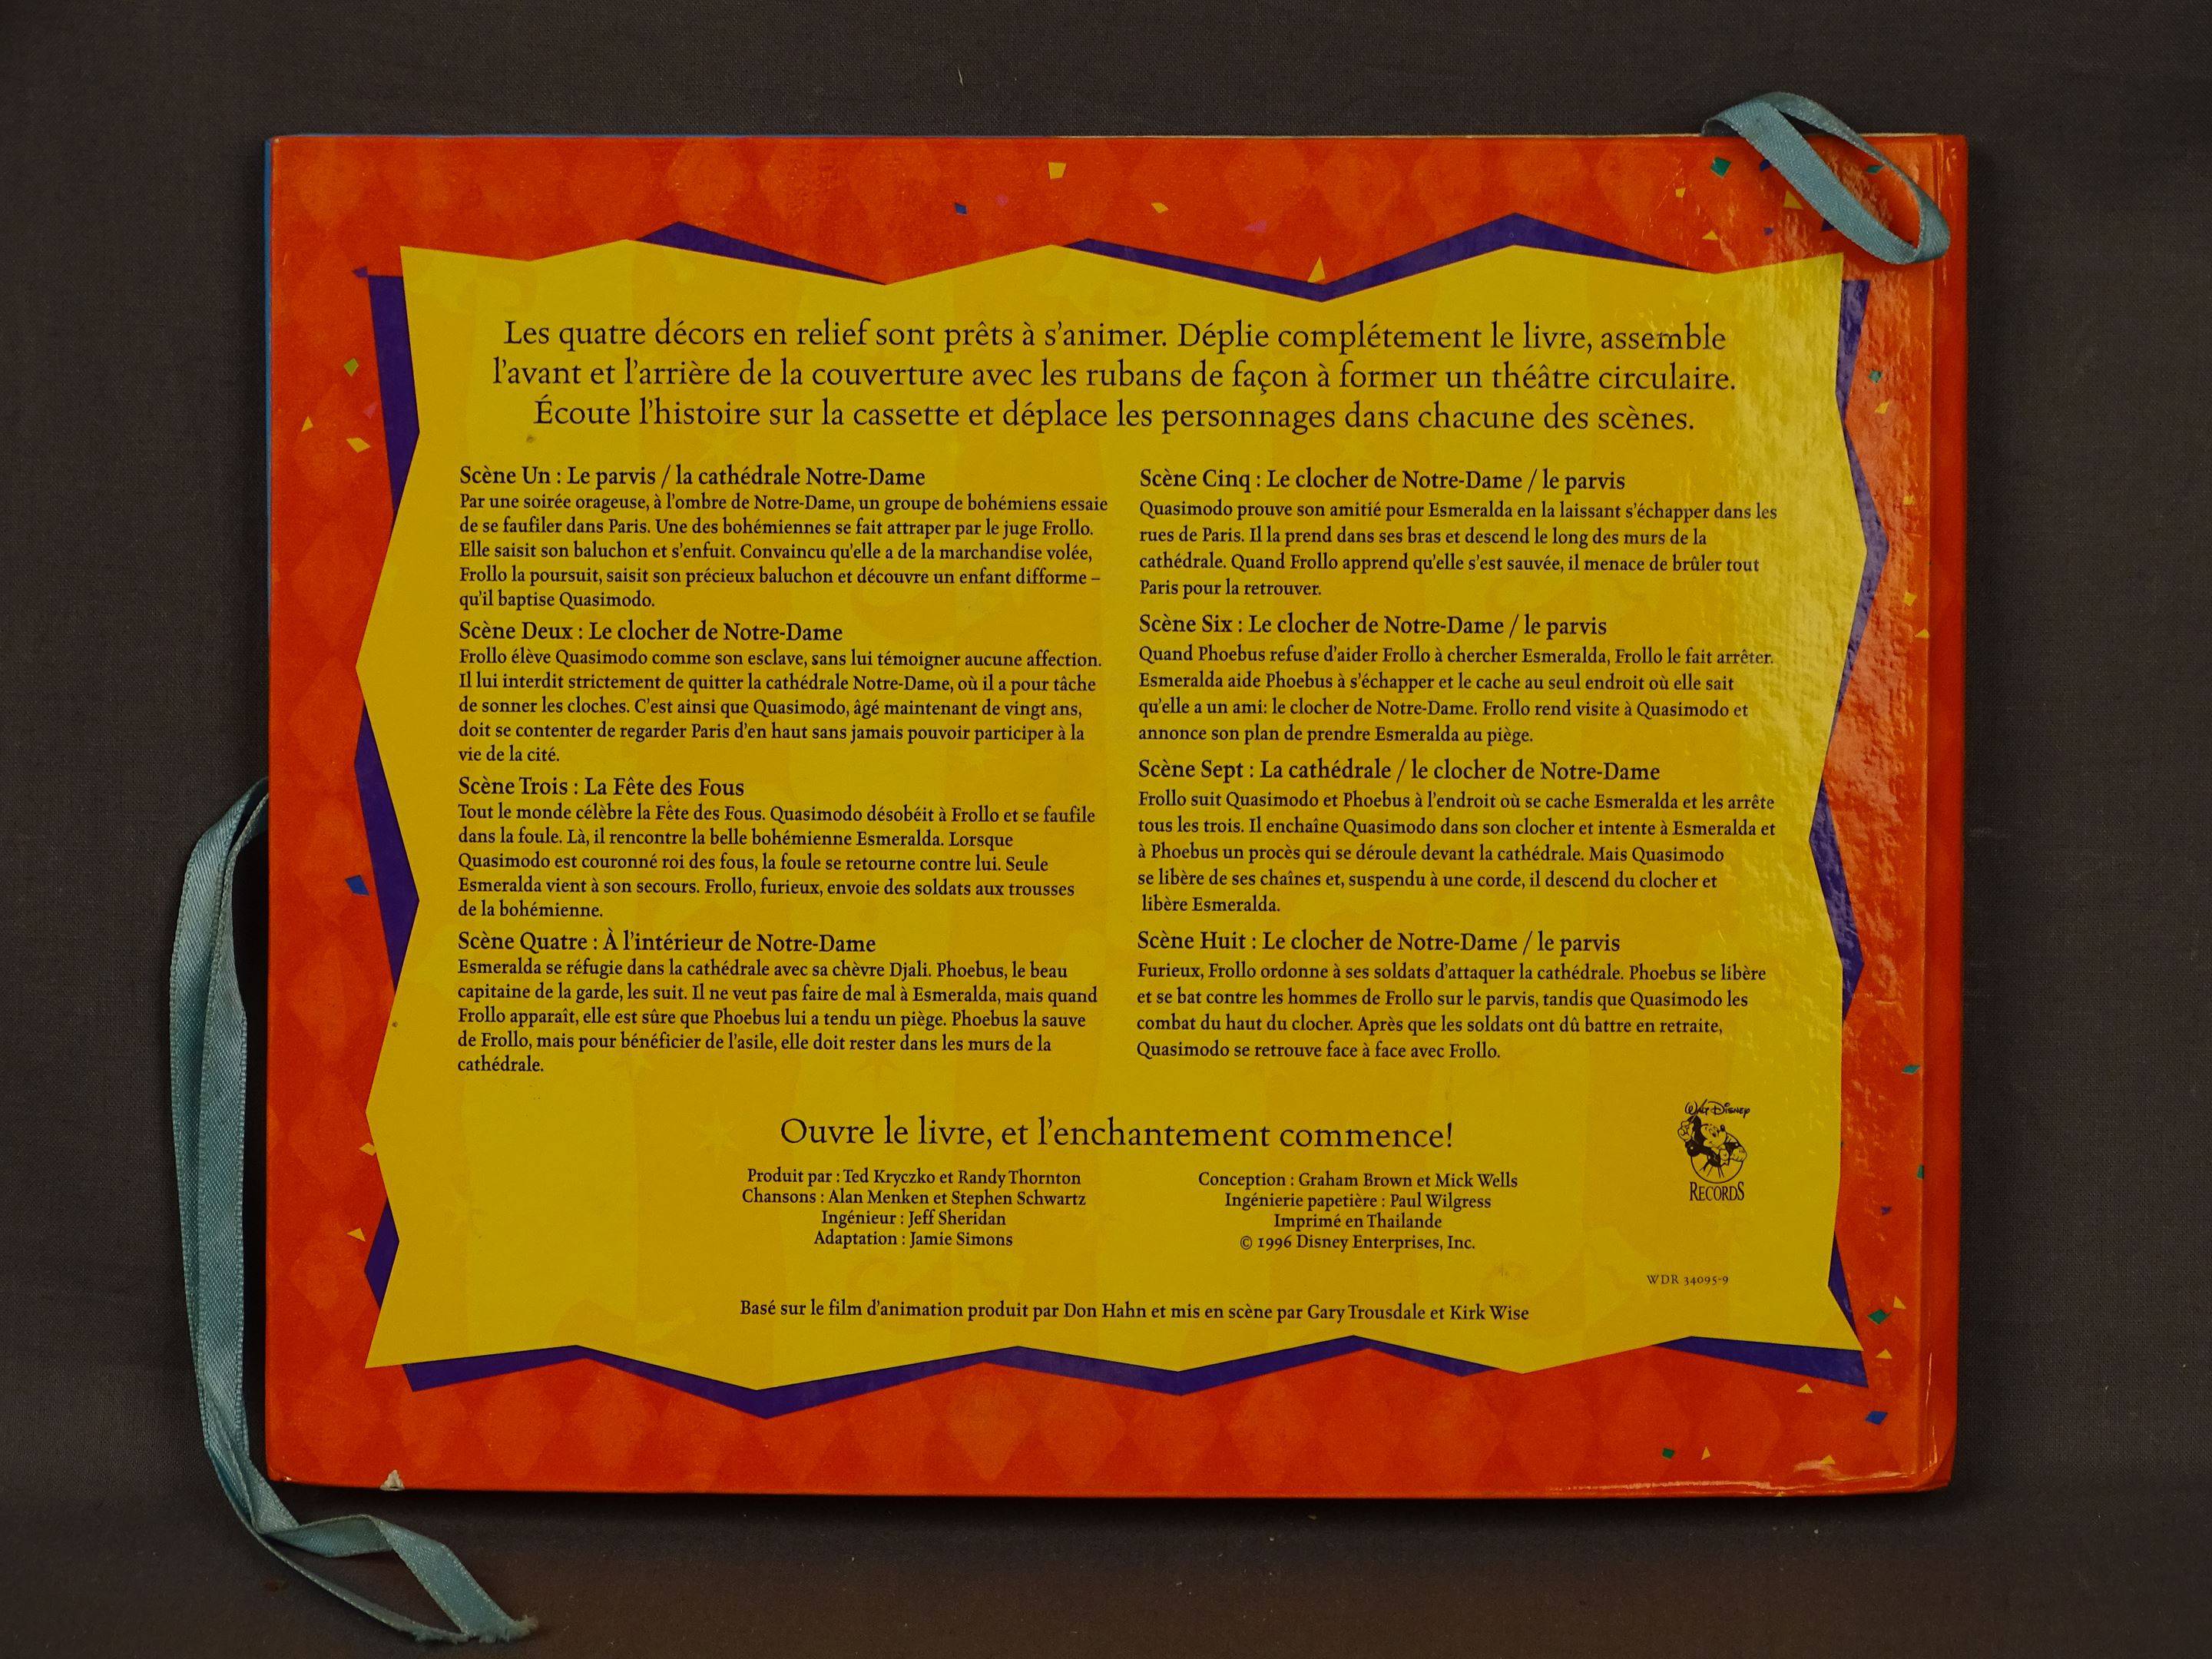 Les quatre décors en relief sont prêts à s'animer. Déplie complétement le livre, assemble
l'avant et l'arrière de la couverture avec les rubans de façon à former un théâtre circulaire.
Écoute l'histoire sur la cassette et déplace les personnages dans chacune des scènes.
Scène Un : Le parvis / la cathédrale Notre-Dame
Par une soirée orageuse, à l'ombre de Notre-Dame, un groupe de bohémiens essaie
de se faufiler dans Paris. Une des bohémiennes se fait attraper par le juge Frollo.
Elle saisit son baluchon et s'enfuit. Convaincu qu'elle a de la marchandise volée,
Frollo la poursuit, saisit son précieux baluchon et découvre un enfant difforme –
qu'il baptise Quasimodo.
Scène Deux : Le clocher de Notre-Dame
Frollo élève Quasimodo comme son esclave, sans lui témoigner aucune affection.
Il lui interdit strictement de quitter la cathédrale Notre-Dame, où il a pour tâche
de sonner les cloches. C'est ainsi que Quasimodo, âgé maintenant de vingt ans,
doit se contenter de regarder Paris d'en haut sans jamais pouvoir participer à la
vie de la cité.
Scène Trois : La Fête des Fous
Tout le monde célèbre la Fête des Fous. Quasimodo désobéit à Frollo et se faufile
dans la foule. Là, il rencontre la belle bohémienne Esmeralda. Lorsque
Quasimodo est couronné roi des fous, la foule se retourne contre lui. Seule
Esmeralda vient à son secours. Frollo, furieux, envoie des soldats aux trousses
de la bohémienne.
Scène Quatre : À l'intérieur de Notre-Dame
Esmeralda se réfugie dans la cathédrale avec sa chèvre Djali. Phoebus, le beau
capitaine de la garde, les suit. Il ne veut pas faire de mal à Esmeralda, mais quand
Frollo apparaît, elle est sûre que Phoebus lui a tendu un piège. Phoebus la sauve
de Frollo, mais pour bénéficier de l'asile, elle doit rester dans les murs de la
cathédrale.
Scène Cinq : Le clocher de Notre-Dame / le parvis
Quasimodo prouve son amitié pour Esmeralda en la laissant s'échapper dans les
rues de Paris. Il la prend dans ses bras et descend le long des murs de la
cathédrale. Quand Frollo apprend qu'elle s'est sauvée, il menace de brûler tout
Paris pour la retrouver.
Scène Six : Le clocher de Notre-Dame / le parvis
Quand Phoebus refuse d'aider Frollo à chercher Esmeralda, Frollo le fait arrêter.
Esmeralda aide Phoebus à s'échapper et le cache au seul endroit où elle sait
qu'elle a un ami: le clocher de Notre-Dame. Frollo rend visite à Quasimodo et
annonce son plan de prendre Esmeralda au piège.
Scène Sept : La cathédrale / le clocher de Notre-Dame
Frollo suit Quasimodo et Phoebus à l'endroit où se cache Esmeralda et les arrête
tous les trois. Il enchaîne Quasimodo dans son clocher et intente à Esmeralda et
à Phoebus un procès qui se déroule devant la cathédrale. Mais Quasimodo
se libère de ses chaînes et, suspendu à une corde, il descend du clocher et
libère Esmeralda.
Scène Huit : Le clocher de Notre-Dame / le parvis
Furieux, Frollo ordonne à ses soldats d'attaquer la cathédrale. Phoebus se libère
et se bat contre les hommes de Frollo sur le parvis, tandis que Quasimodo les
combat du haut du clocher. Après que les soldats ont dû battre en retraite,
Quasimodo se retrouve face à face avec Frollo.
Ouvre le livre, et l'enchantement commence!
Produit par : Ted Kryczko et Randy Thornton
Chansons : Alan Menken et Stephen Schwartz
Ingénieur : Jeff Sheridan
Adaptation : Jamie Simons
Conception : Graham Brown et Mick Wells
Ingénierie papetière : Paul Wilgress
Imprimé en Thailande
© 1996 Disney Enterprises, Inc.
Walt Disney
RECORDS
WDR 34095-9
Basé sur le film d'animation produit par Don Hahn et mis en scène par Gary Trousdale et Kirk Wise